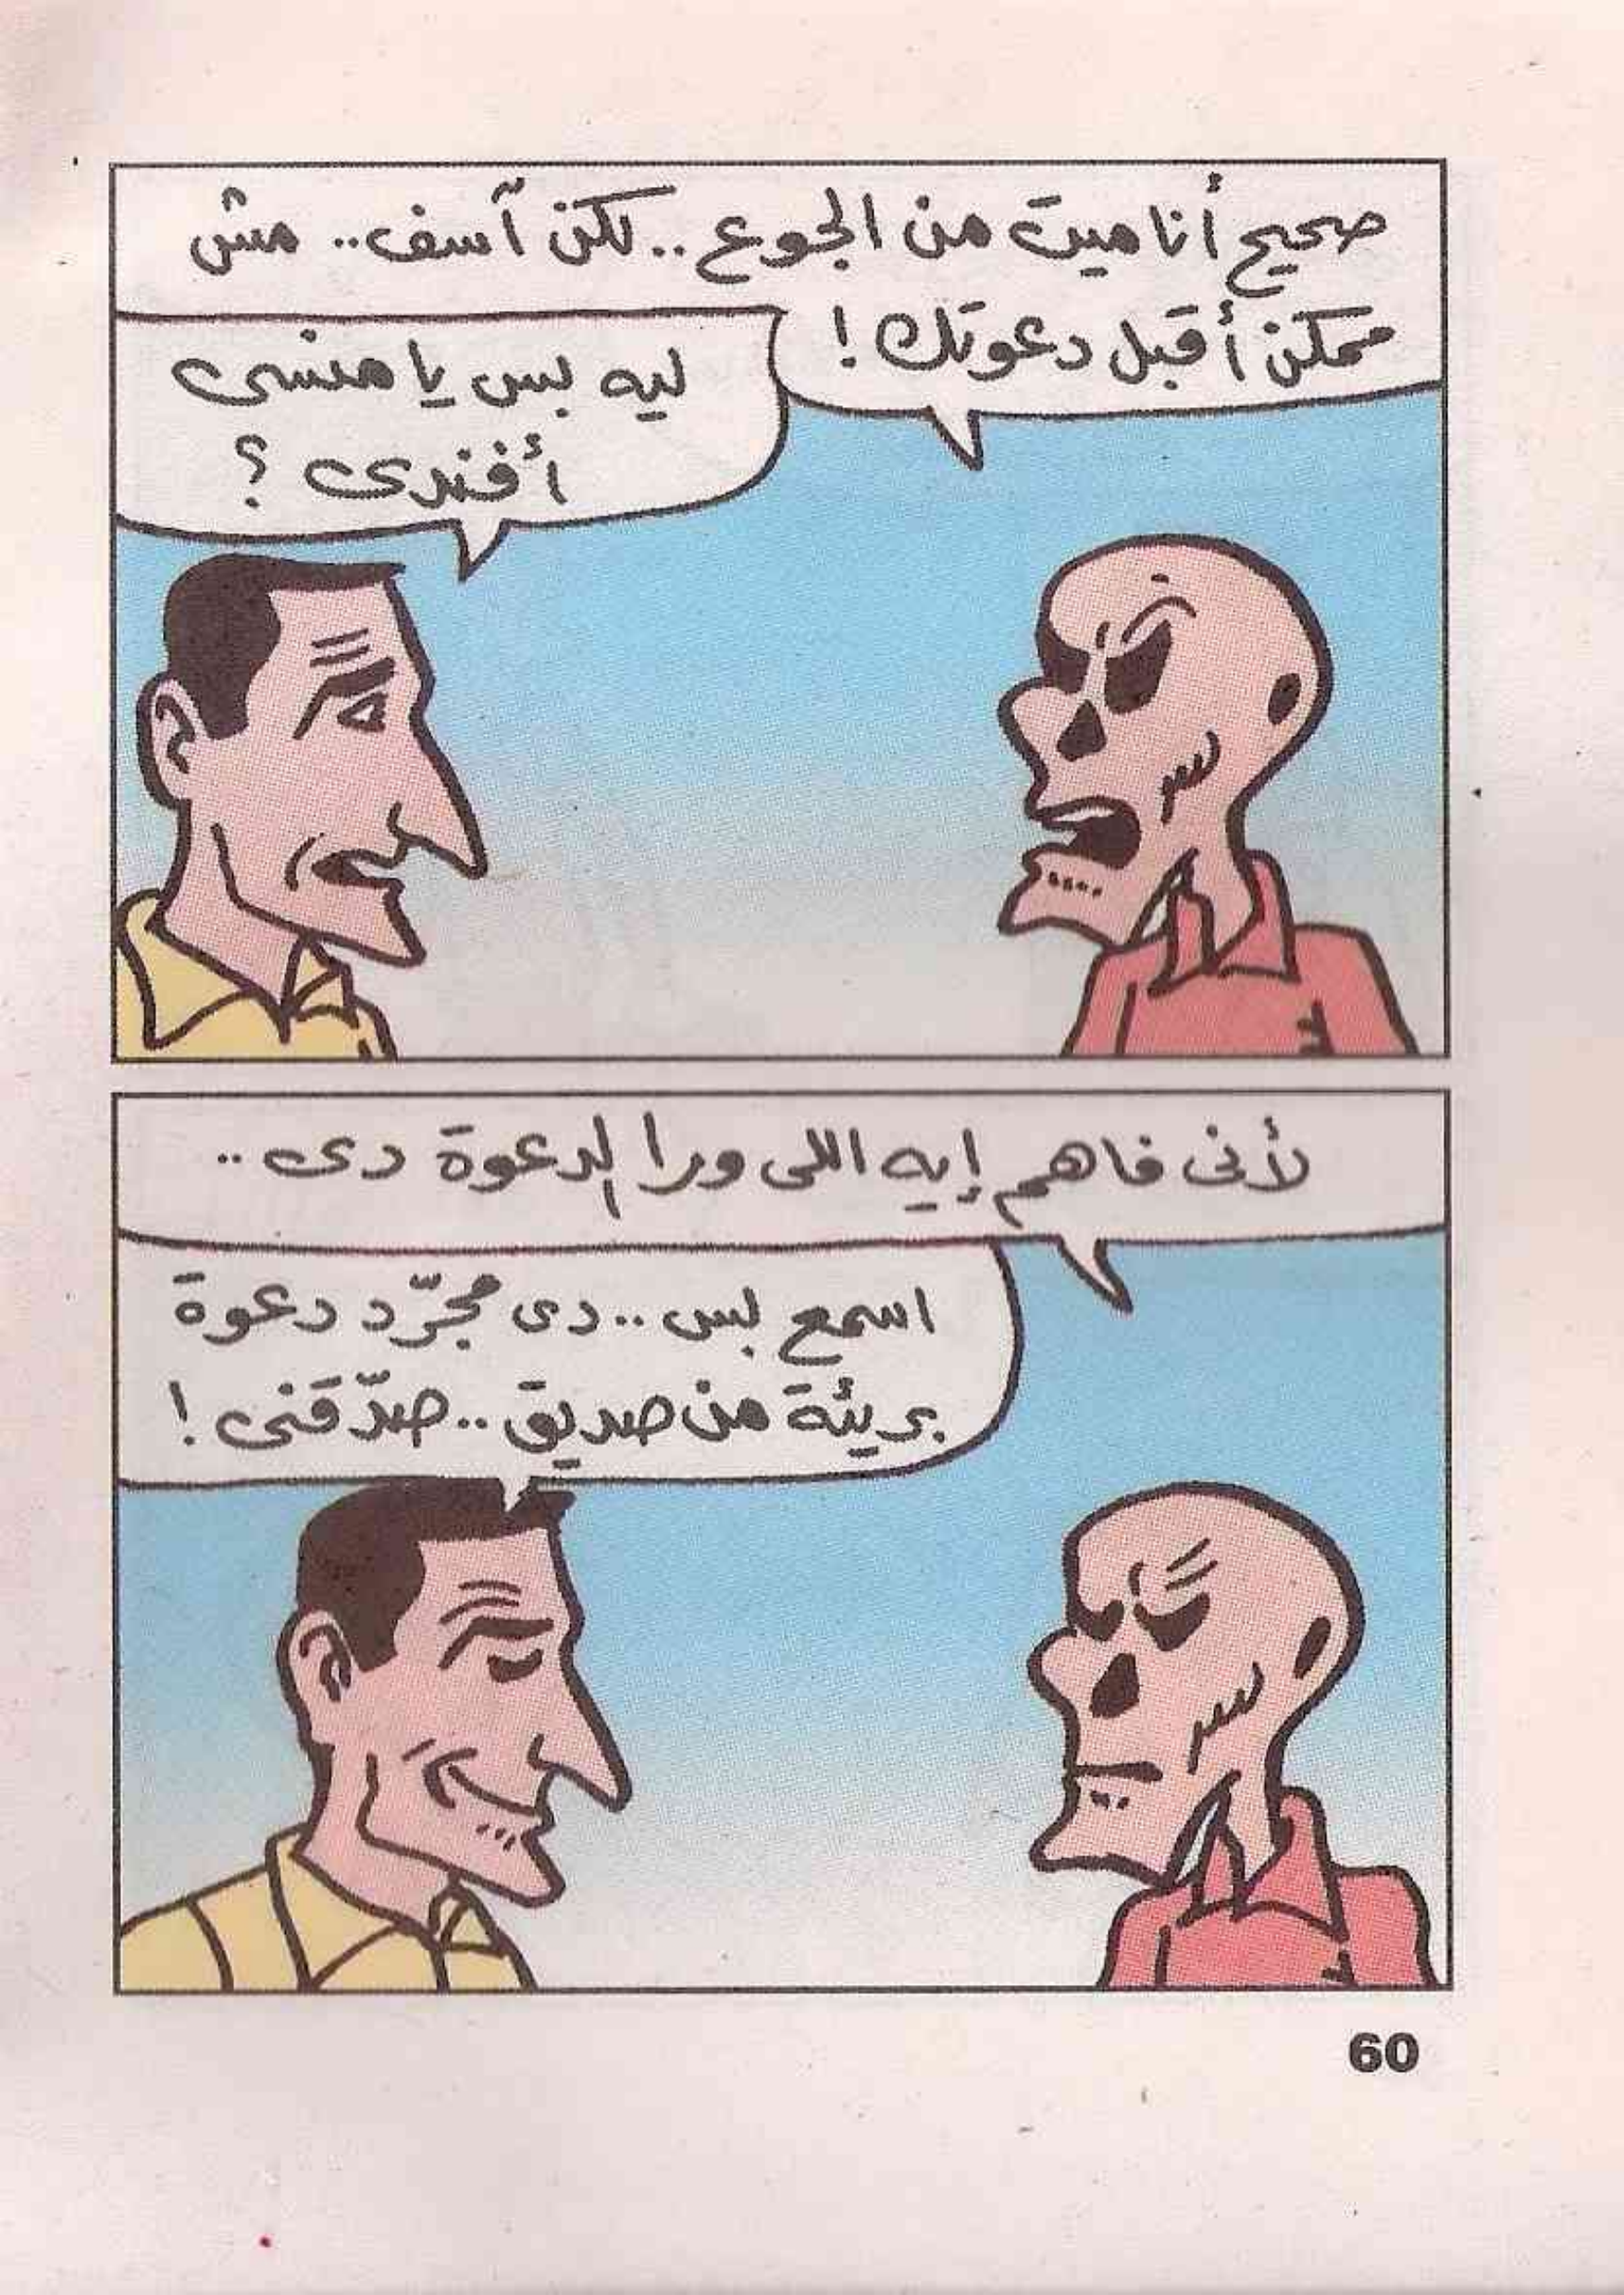 صحيح أنا ميت من الجوع .. لكن آسف .. مش
ممكن أقبل دعوتك !
ليه بس يا منسى
أفندى ؟
لأنى فاهم إيه اللى ورا الدعوة دى ..
اسمع بس .. دى مجرّد دعوة
بريئة من صديق .. صدّقنى !
60